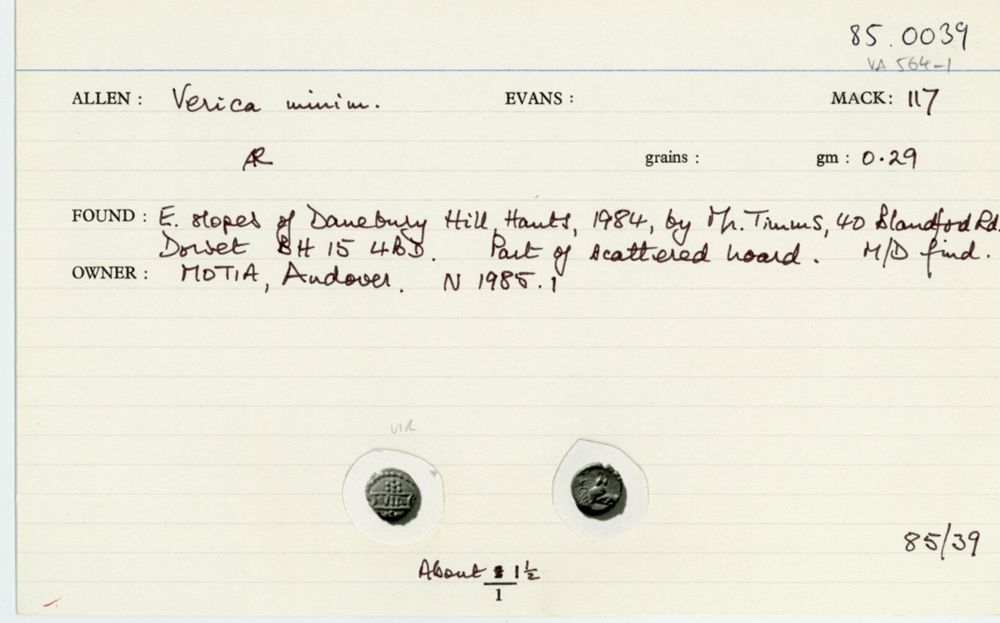 85.0039
VA 564-1
ALLEN : Verica minim. EVANS : MACK: 117
AR grains : gm : 0.29
FOUND : E. slopes of Danebury Hill, Hants, 1984, by Mr. Timms, 40 Blandford Rd.
Dorset BH 15 4BD. Part of scattered hoard. M/D find.
OWNER : MOTIA, Andover. N 1985.1
VIR
85/39
About 1½
1